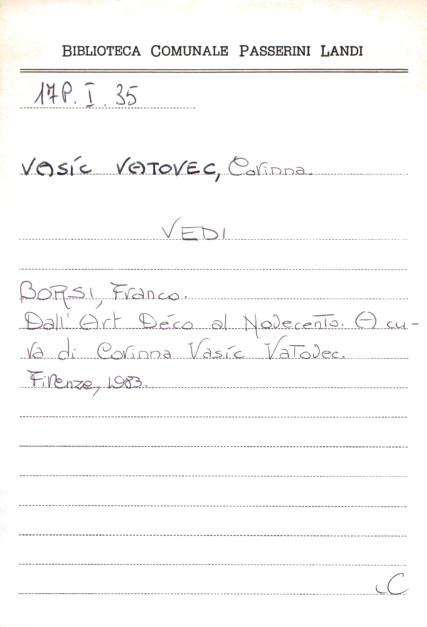 BIBLIOTECA COMUNALE PASSERINI LANDI
17P. I. 35
VASÍC VATOVEC, Corinna.
VEDI
BORSI, Franco.
Dall' Art Déco al Novecento. A cu-
ra di Corinna Vasíc Vatovec.
Firenze, 1983.
C